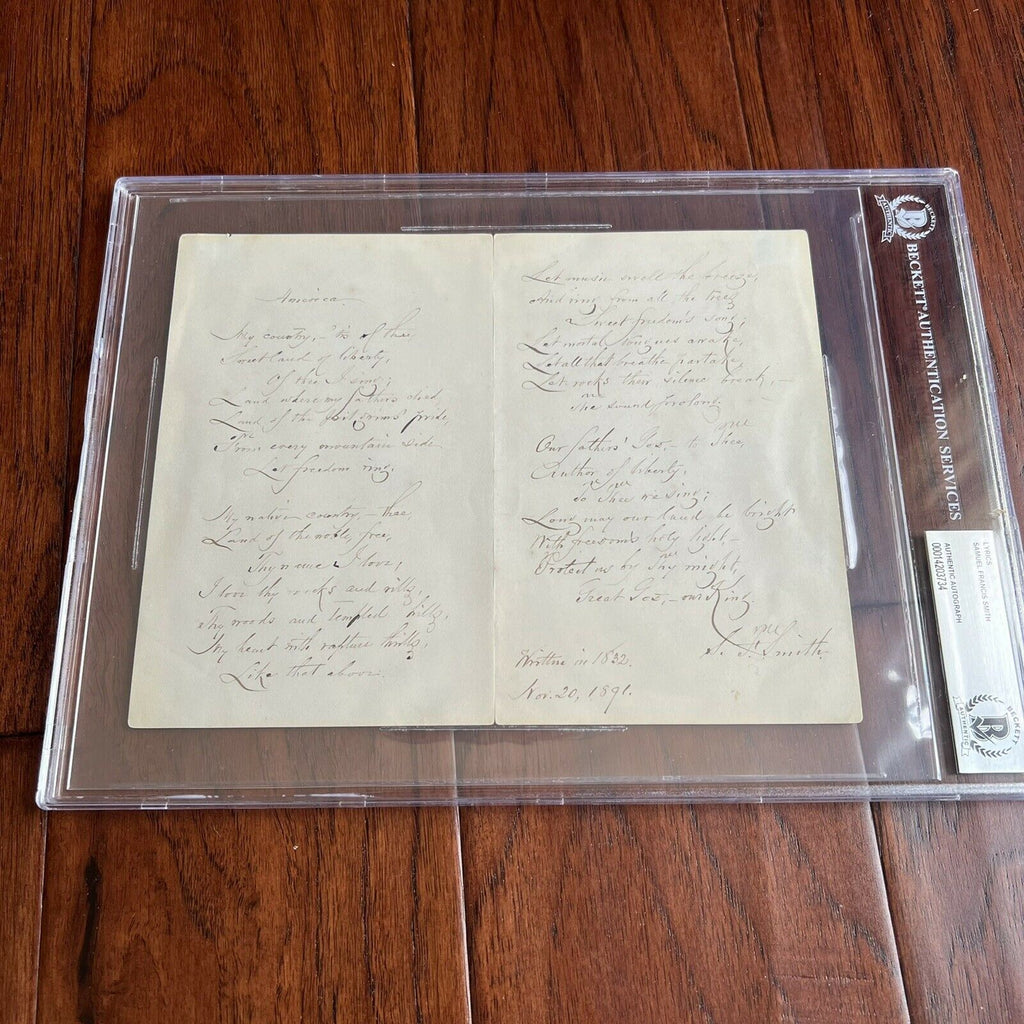 America.
My country, – 'tis of thee,
Sweet land of liberty,
Of thee I sing;
Land where my fathers died,
Land of the pilgrims' pride,
From every mountain side
Let freedom ring.
My native country, – thee,
Land of the noble, free,
Thy name I love;
I love thy rocks and rills,
Thy woods and templed hills;
My heart with rapture thrills,
Like that above.
Let music swell the breeze,
And ring from all the trees
Sweet freedom's song;
Let mortal tongues awake,
Let all that breathe partake,
Let rocks their silence break, –
The sound prolong.
Our fathers' God, – to Thee,
Author of liberty,
To Thee we sing;
Long may our land be bright
With freedom's holy light, –
Protect us by Thy might,
Great God, – our King.
S. F. Smith.
Written in 1832.
Nov. 20, 1891.
BECKETT
AUTHENTIC
BECKETT AUTHENTICATION SERVICES
LYRICS
SAMUEL FRANCIS SMITH
AUTHENTIC AUTOGRAPH
00014203734
BECKETT
AUTHENTIC